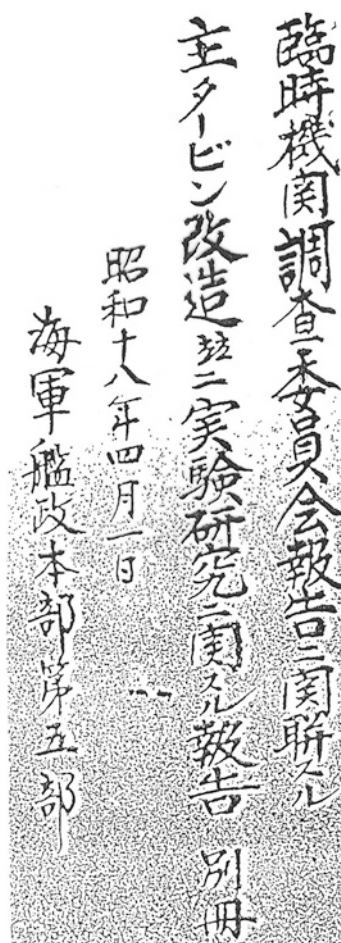 臨時機関調査委員会報告ニ関聯スル
主タービン改造竝ニ実験研究ニ関スル報告 別冊
昭和十八年四月一日
海軍艦政本部第五部